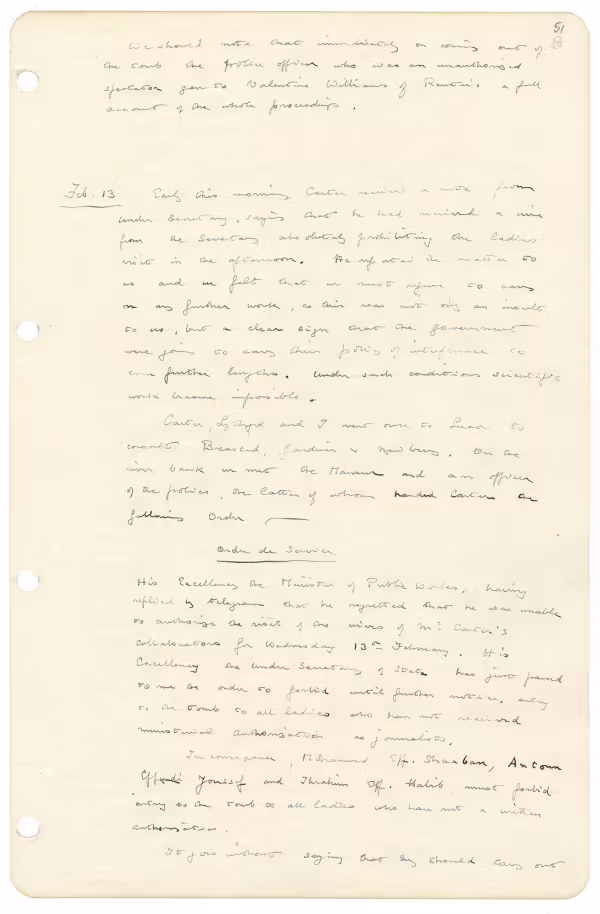 51
We should note that immediately on coming out of
the tomb the police officer who was an unauthorised
spectator gave to Valentine Williams of Reuter's a full
account of the whole proceedings.
Feb. 13 Early this morning Carter received a note from
Under Secretary, saying that he had received a wire
from the Secretary absolutely prohibiting the ladies
visit in the afternoon. He reported the matter to
us and we felt that we must refuse to carry
on any further work, as this was not only an insult
to us, but a clear sign that the government
were going to carry their policy of interference to
even further lengths. Under such conditions scientific
work became impossible.
Carter, Lythgoe and I went over to Luxor to
consult Breasted, Gardiner & Newberry. On the
river bank we met the Mamur and an officer
of the police, the latter of whom handed Carter the
following Order —
Ordre de Service
His Excellency the Minister of Public Works, having
replied by telegram that he regretted that he was unable
to authorise the visit of the wives of Mr. Carter's
collaborators for Wednesday 13th February. His
Excellency the Under Secretary of State has just passed
to me the order to forbid until further notice, entry
to the tomb to all ladies who have not received
ministerial authorisation as journalists.
In consequence, Mohamed Eff. Shaaban, Antoun
Effendi Youssef and Ibrahim Eff. Habib must forbid
entry to the tomb to all ladies who have not a written
authorisation.
It goes without saying that they should carry out